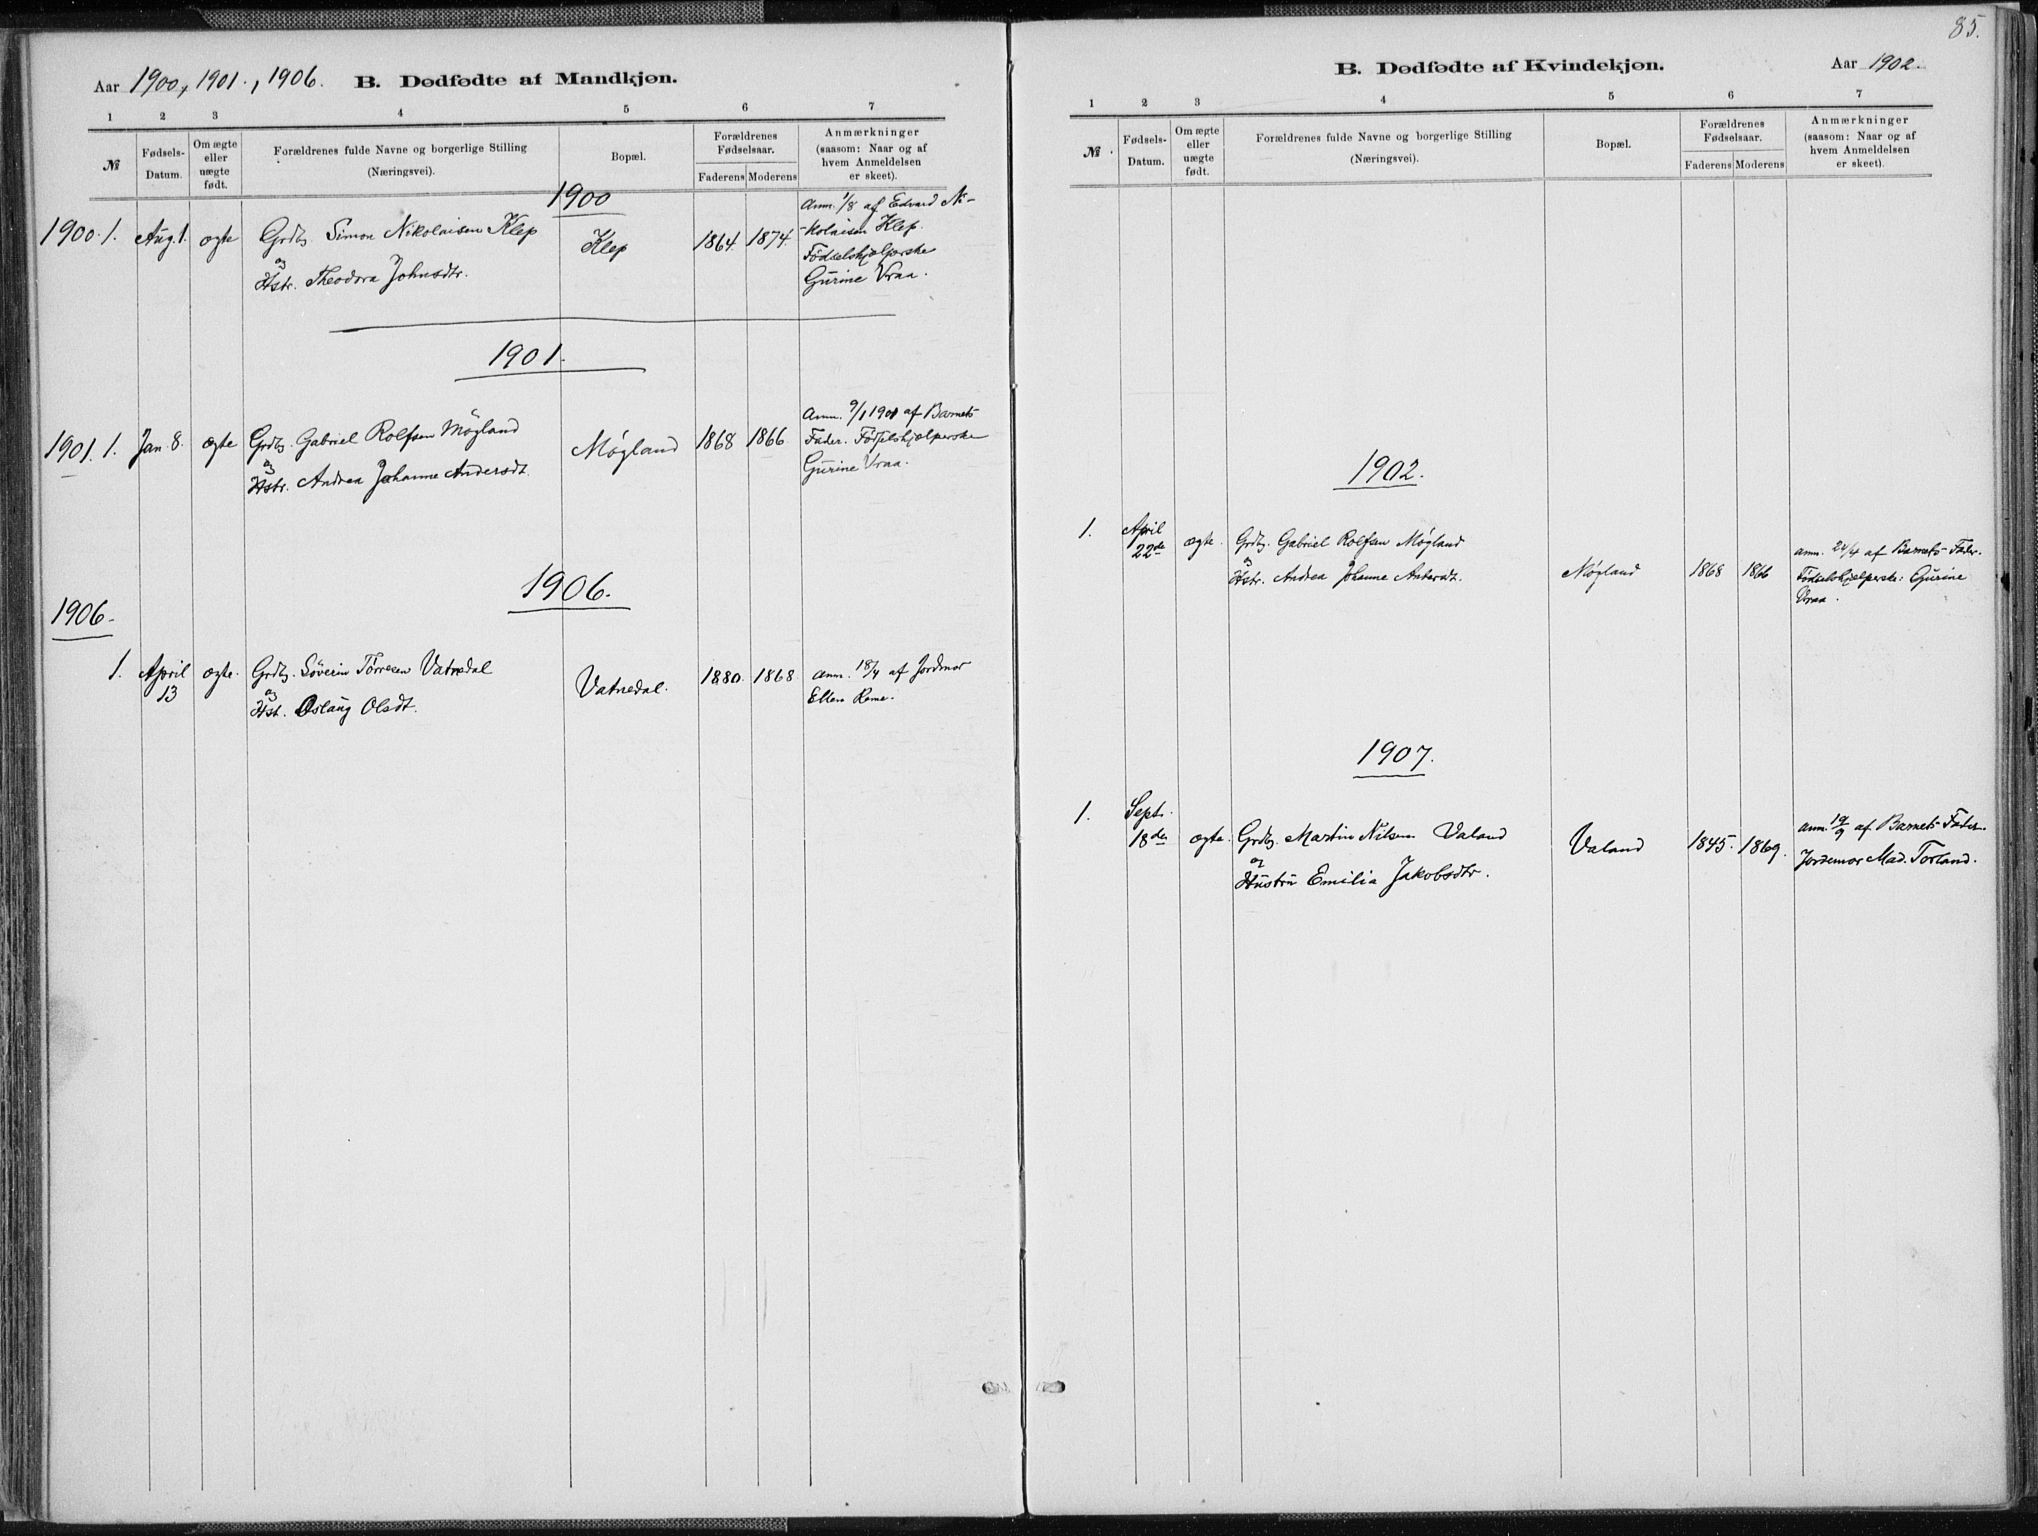 Aar 1900, 1901., 1906. B. Dødfødte af Mandkjøn.
1 2 3 4 5 6 7
№
Fødsels-
Datum.
Om ægte
eller
uægte
født.
Forældrenes fulde Navne og borgerlige Stilling
(Næringsvei).
Bopæl.
Forældrenes
Fødselsaar.
Faderens Moderens
Anmærkninger
(saasom: Naar og af
hvem Anmeldelsen
er skeet).
1900
1900. 1. Aug. 1. ægte Grdbr. Simon Nikolaisen Klep
og
Hstr. Theodora Johnsdtr.
Klep 1864. 1874.
Anm. 1/8 af Edvard Ni-
kolaisen Klep.
Fødselshjælperske
Gurine Vraa.
1901.
1901. 1. Jan 8. ægte Grdbr. Gabriel Rolfsen Møgland
og
Hstr. Andrea Johanne Andersdt.
Møgland 1868 1866
Anm. 9/1 1901 af Barnets
Fader. Fødselshjælperske
Gurine Vraa.
1906.
1906.
1. April
13
ægte. Grdbr. Søverin Tørresen Vatnedal
og
Hst. Oslaug Olsdt.
Vatnedal. 1880. 1868
Anm. 18/4 af Jordmor
Ellen Reme.
85.
B. Dødfødte af Kvindekjøn. Aar 1902.
1 2 3 4 5 6 7
№.
Fødsels-
Datum.
Om ægte
eller
uægte
født.
Forældrenes fulde Navne og borgerlige Stilling
(Næringsvei).
Bopæl.
Forældrenes
Fødselsaar.
Faderens Moderens
Anmærkninger
(saasom: Naar og af
hvem Anmeldelsen
er skeet).
1902.
1. April
22de
ægte. Grdbr. Gabriel Rolfsen Møgland
og
Hstr. Andrea Johanne Andersdt.
Møgland 1868 1866
Anm. 24/4 af Barnets Fader.
Fødselshjælperske: Gurine
Vraa.
1907.
1. Septr.
18de
ægte. Grdbr. Martin Nilsen Valand
og
Hustru Emilia Jakobsdtr.
Valand 1845. 1869.
Anm. 19/9 af Barnets Fader.
Jordemor Mad. Torland.